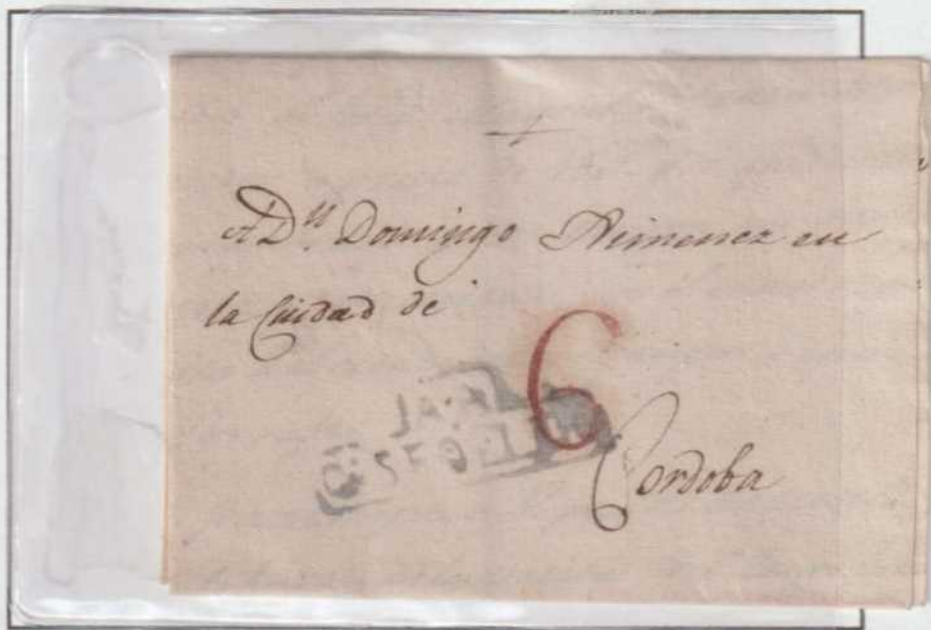 A Dn. Domingo Ximenez en
la Ciudad de
6
Cordoba